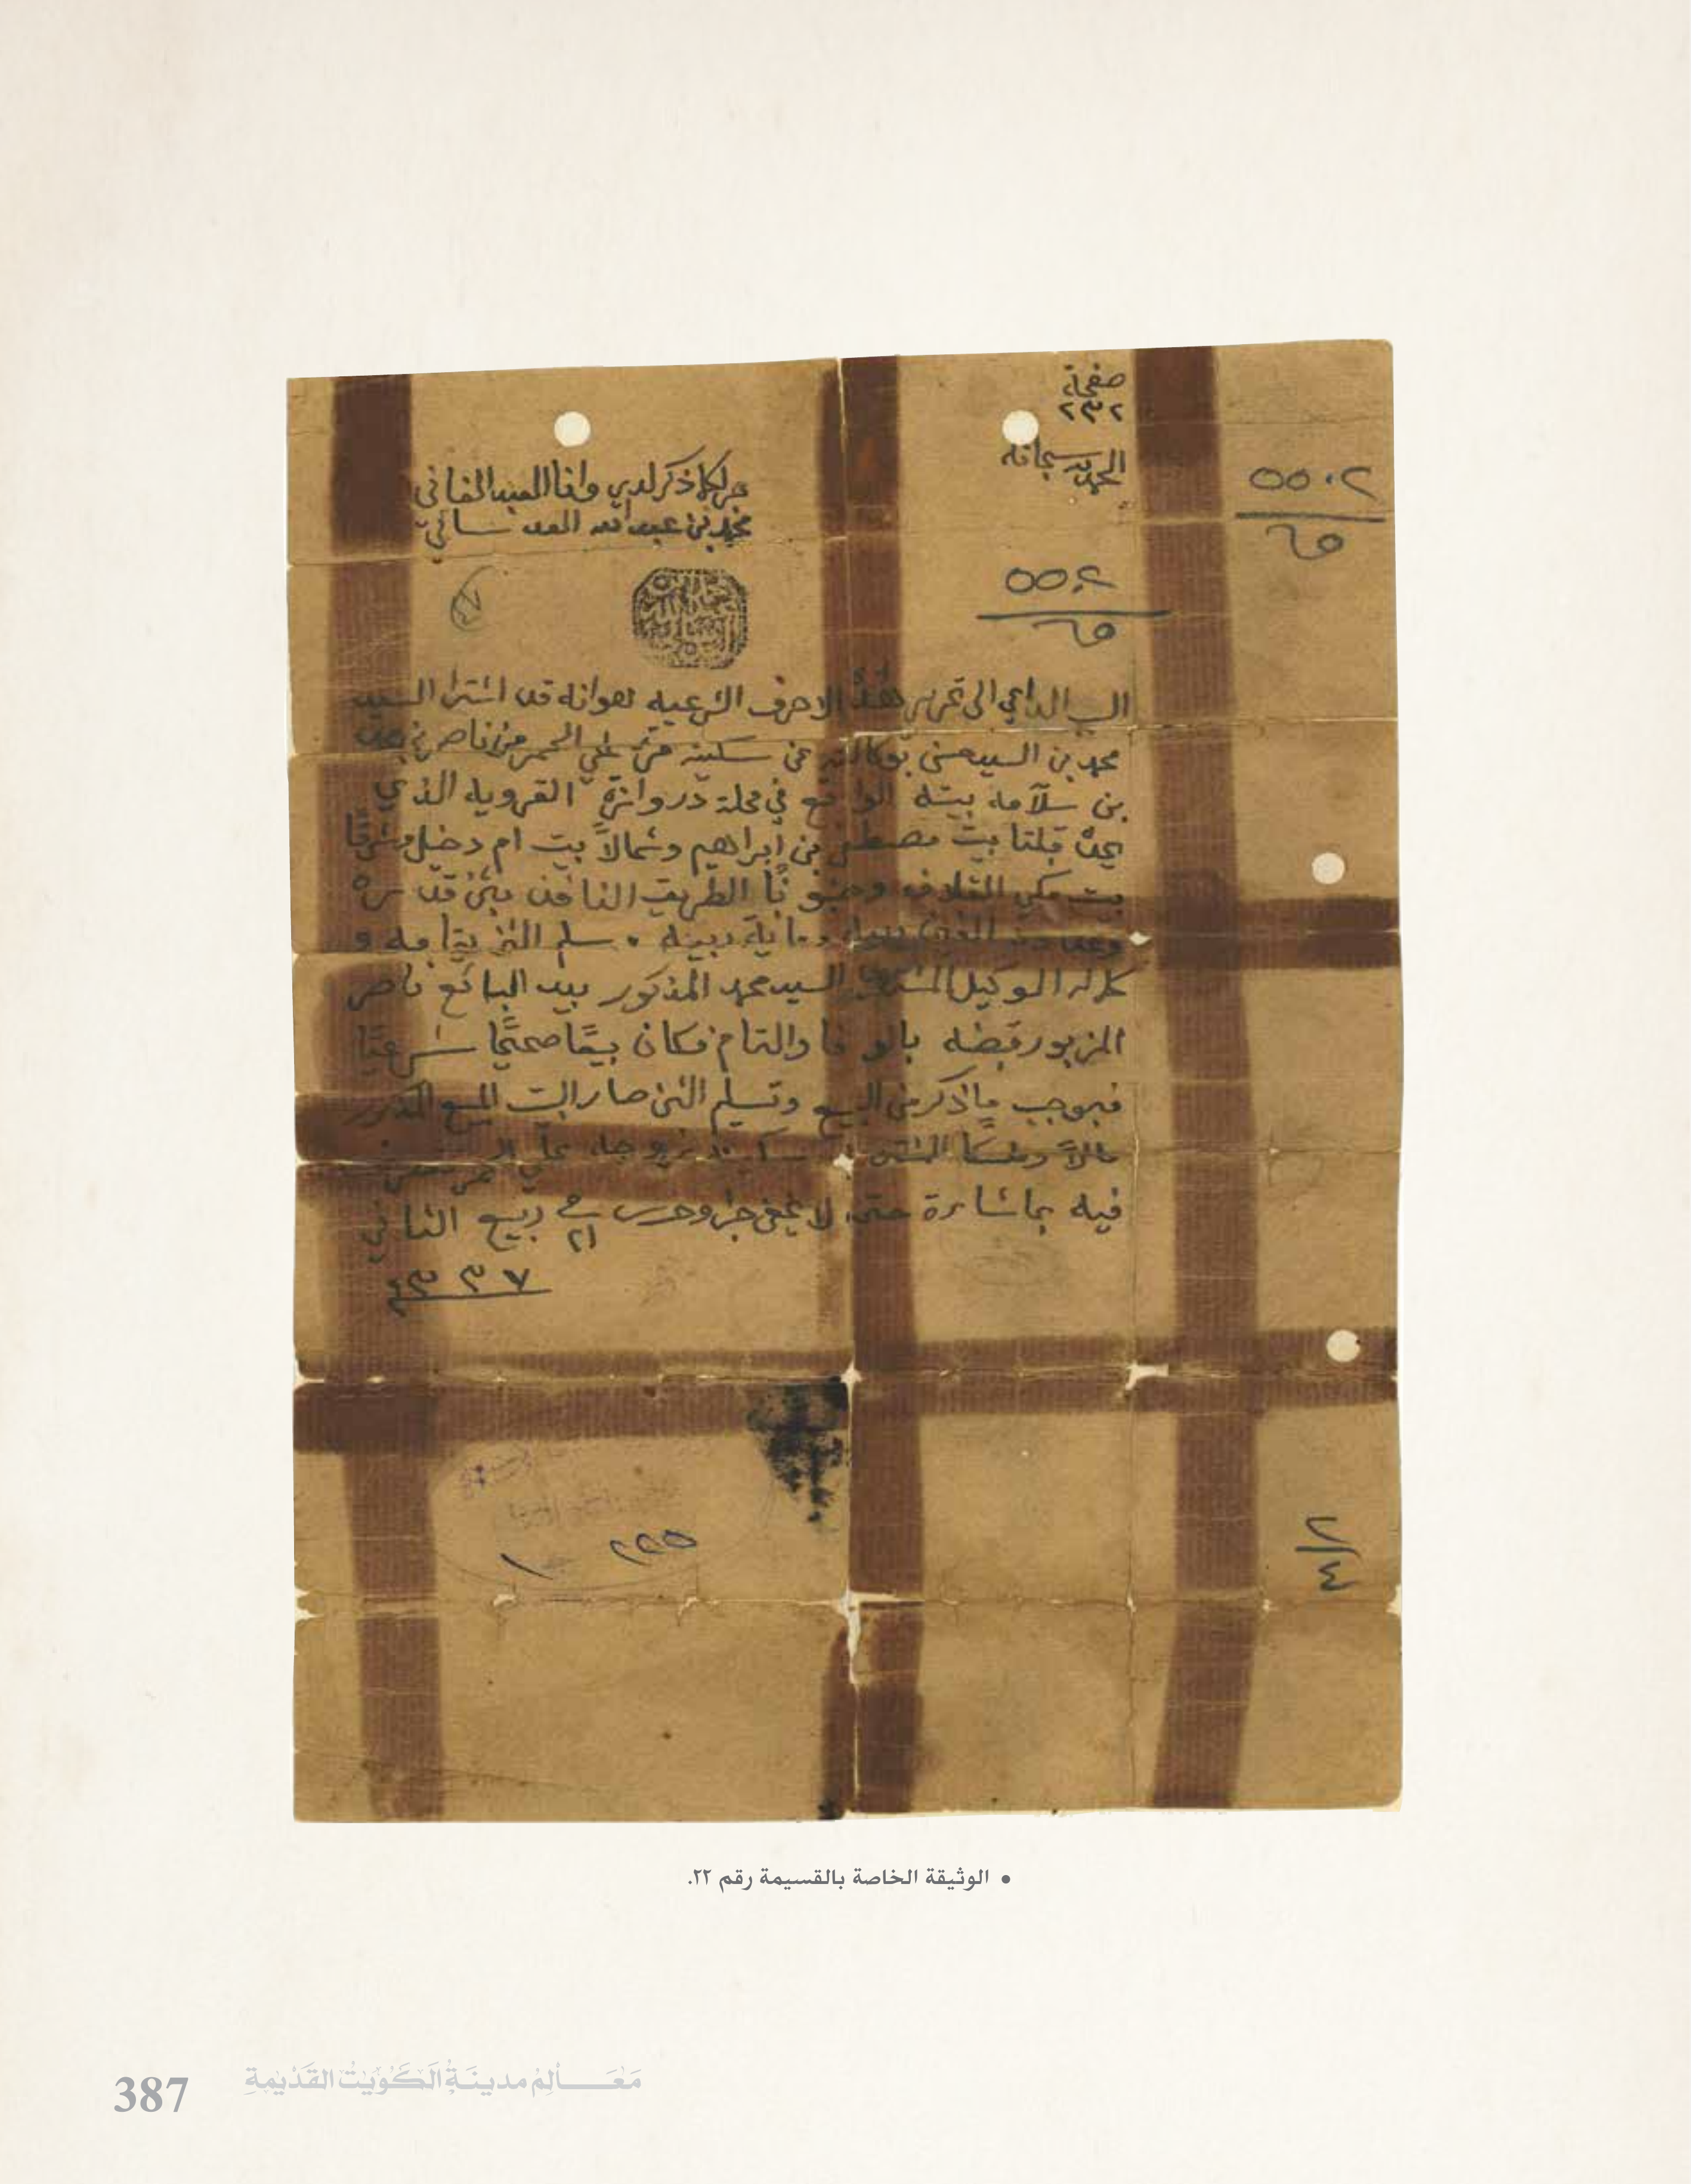 صفحة
٢٣٢
الحمد لله سبحانه
جرى كما ذكر لدي وانا العبد الفاني
محمد بن عبدالله العدساني
٥٥٠٢
٦٥
٥٥٠٢
٦٥
السبب الداعي الى تحرير هذه الاحرف الشرعيه هو انه قد اشترا السيد
محمد بن السيد حسن بوكالته عن سكينه علي من ناصر بن
بن سلامه بيته الواقع في محلة دروازة القرويه الذي
يحده قبلتا بيت مصطفى بن ابراهيم وشمالاً بيت ام دخيل وشرقًا
بيت مكي القلاف وجنوبًا الطريق النافذ بثمن قدره
وعدده ربيه وماية ربيه . سلم الثمن بتمامه و
كماله الوكيل السيد محمد المذكور بيد البائع ناصر
المزبور قبضه بالوفا والتمام فكان بيعًا صحيحًا شرعيًا
فبموجب ما ذكر من البيع وتسلم الثمن صار البيت المبيع المذكور
مالاً وملكًا علي
فيه بما شاءت حتى لا يخفى جرا وحرر في ٢١ ربيع الثاني
١٣٣٧
٢٢٥ ١
٢/٤
• الوثيقة الخاصة بالقسيمة رقم ٢٢.
387 مَعَـالِم مدينَةُ الكُوَيْتُ القَدْيمةِ